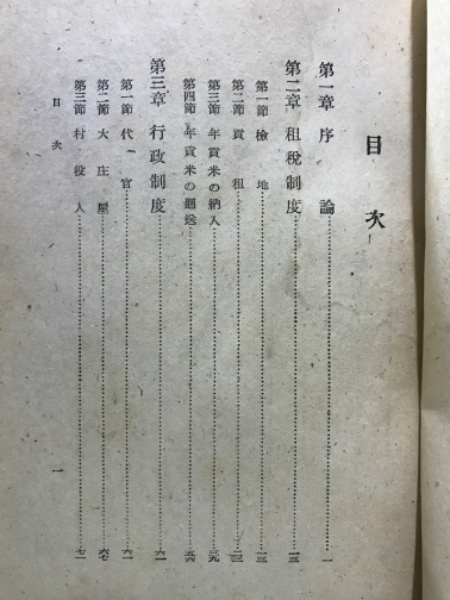 目次
第一章 序論……一
第二章 租税制度……一三
第一節 検地……一三
第二節 貢租……二三
第三節 年貢米の納入……二九
第四節 年貢米の廻送……五六
第三章 行政制度……六一
第一節 代官……六一
第二節 大庄屋……六七
第三節 村役人……七一
目次 一